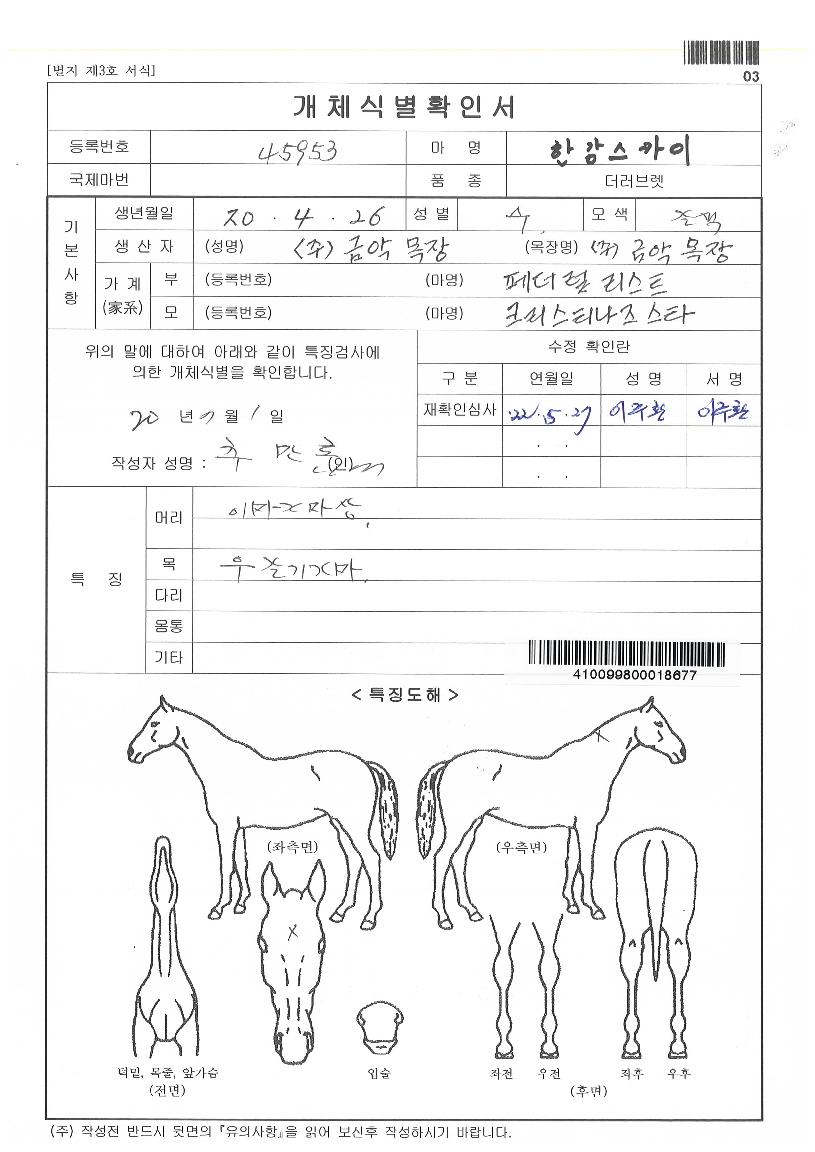 [별지 제3호 서식]
03
개체식별확인서
등록번호 45953 마 명 한강스카이
국제마번 품 종 더러브렛
기본사항
생년월일 20 . 4 . 26 성 별 수 모 색
생 산 자 (성명) (주) 금악 목장 (목장명) (주) 금악 목장
가 계 (家系) 부 (등록번호) (마명) 페더럴 리스트
모 (등록번호) (마명) 크리스티나즈 스타
위의 말에 대하여 아래와 같이 특징검사에
의한 개체식별을 확인합니다.
20 년 7 월 1 일
작성자 성명 : 추 만 호 (인)
수정 확인란
구 분 연월일 성 명 서 명
재확인심사 '22.5.27 이주환 이주환
. .
. .
특 징
머리
목
다리
몸통
기타
410099800018677
< 특징도해 >
(좌측면) (우측면)
턱밑, 목줄, 앞가슴
(전면)
입술
좌전 우전 좌후 우후
(후면)
(주) 작성전 반드시 뒷면의 『유의사항』을 읽어 보신후 작성하시기 바랍니다.